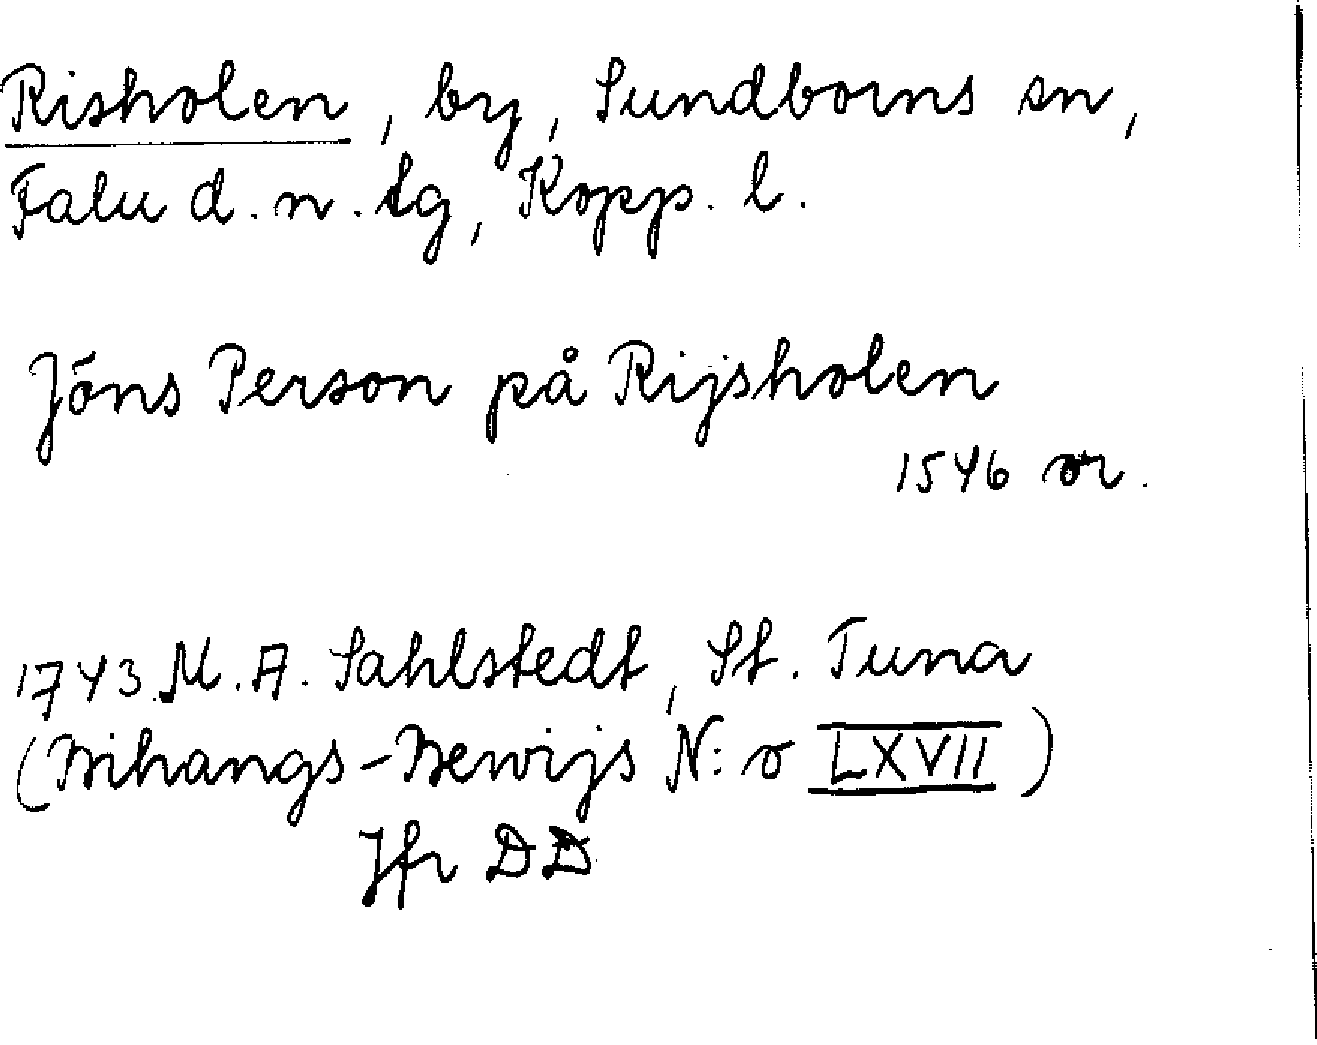 Risholen, by, Sundborns sn,
Falu d. n. tg, Kopp. l.
Jöns Person på Rijsholen
1546 or.
1743 M. A. Sahlstedt, St. Tuna
(Bihangs-Bewijs N:o LXVII)
Jfr DD